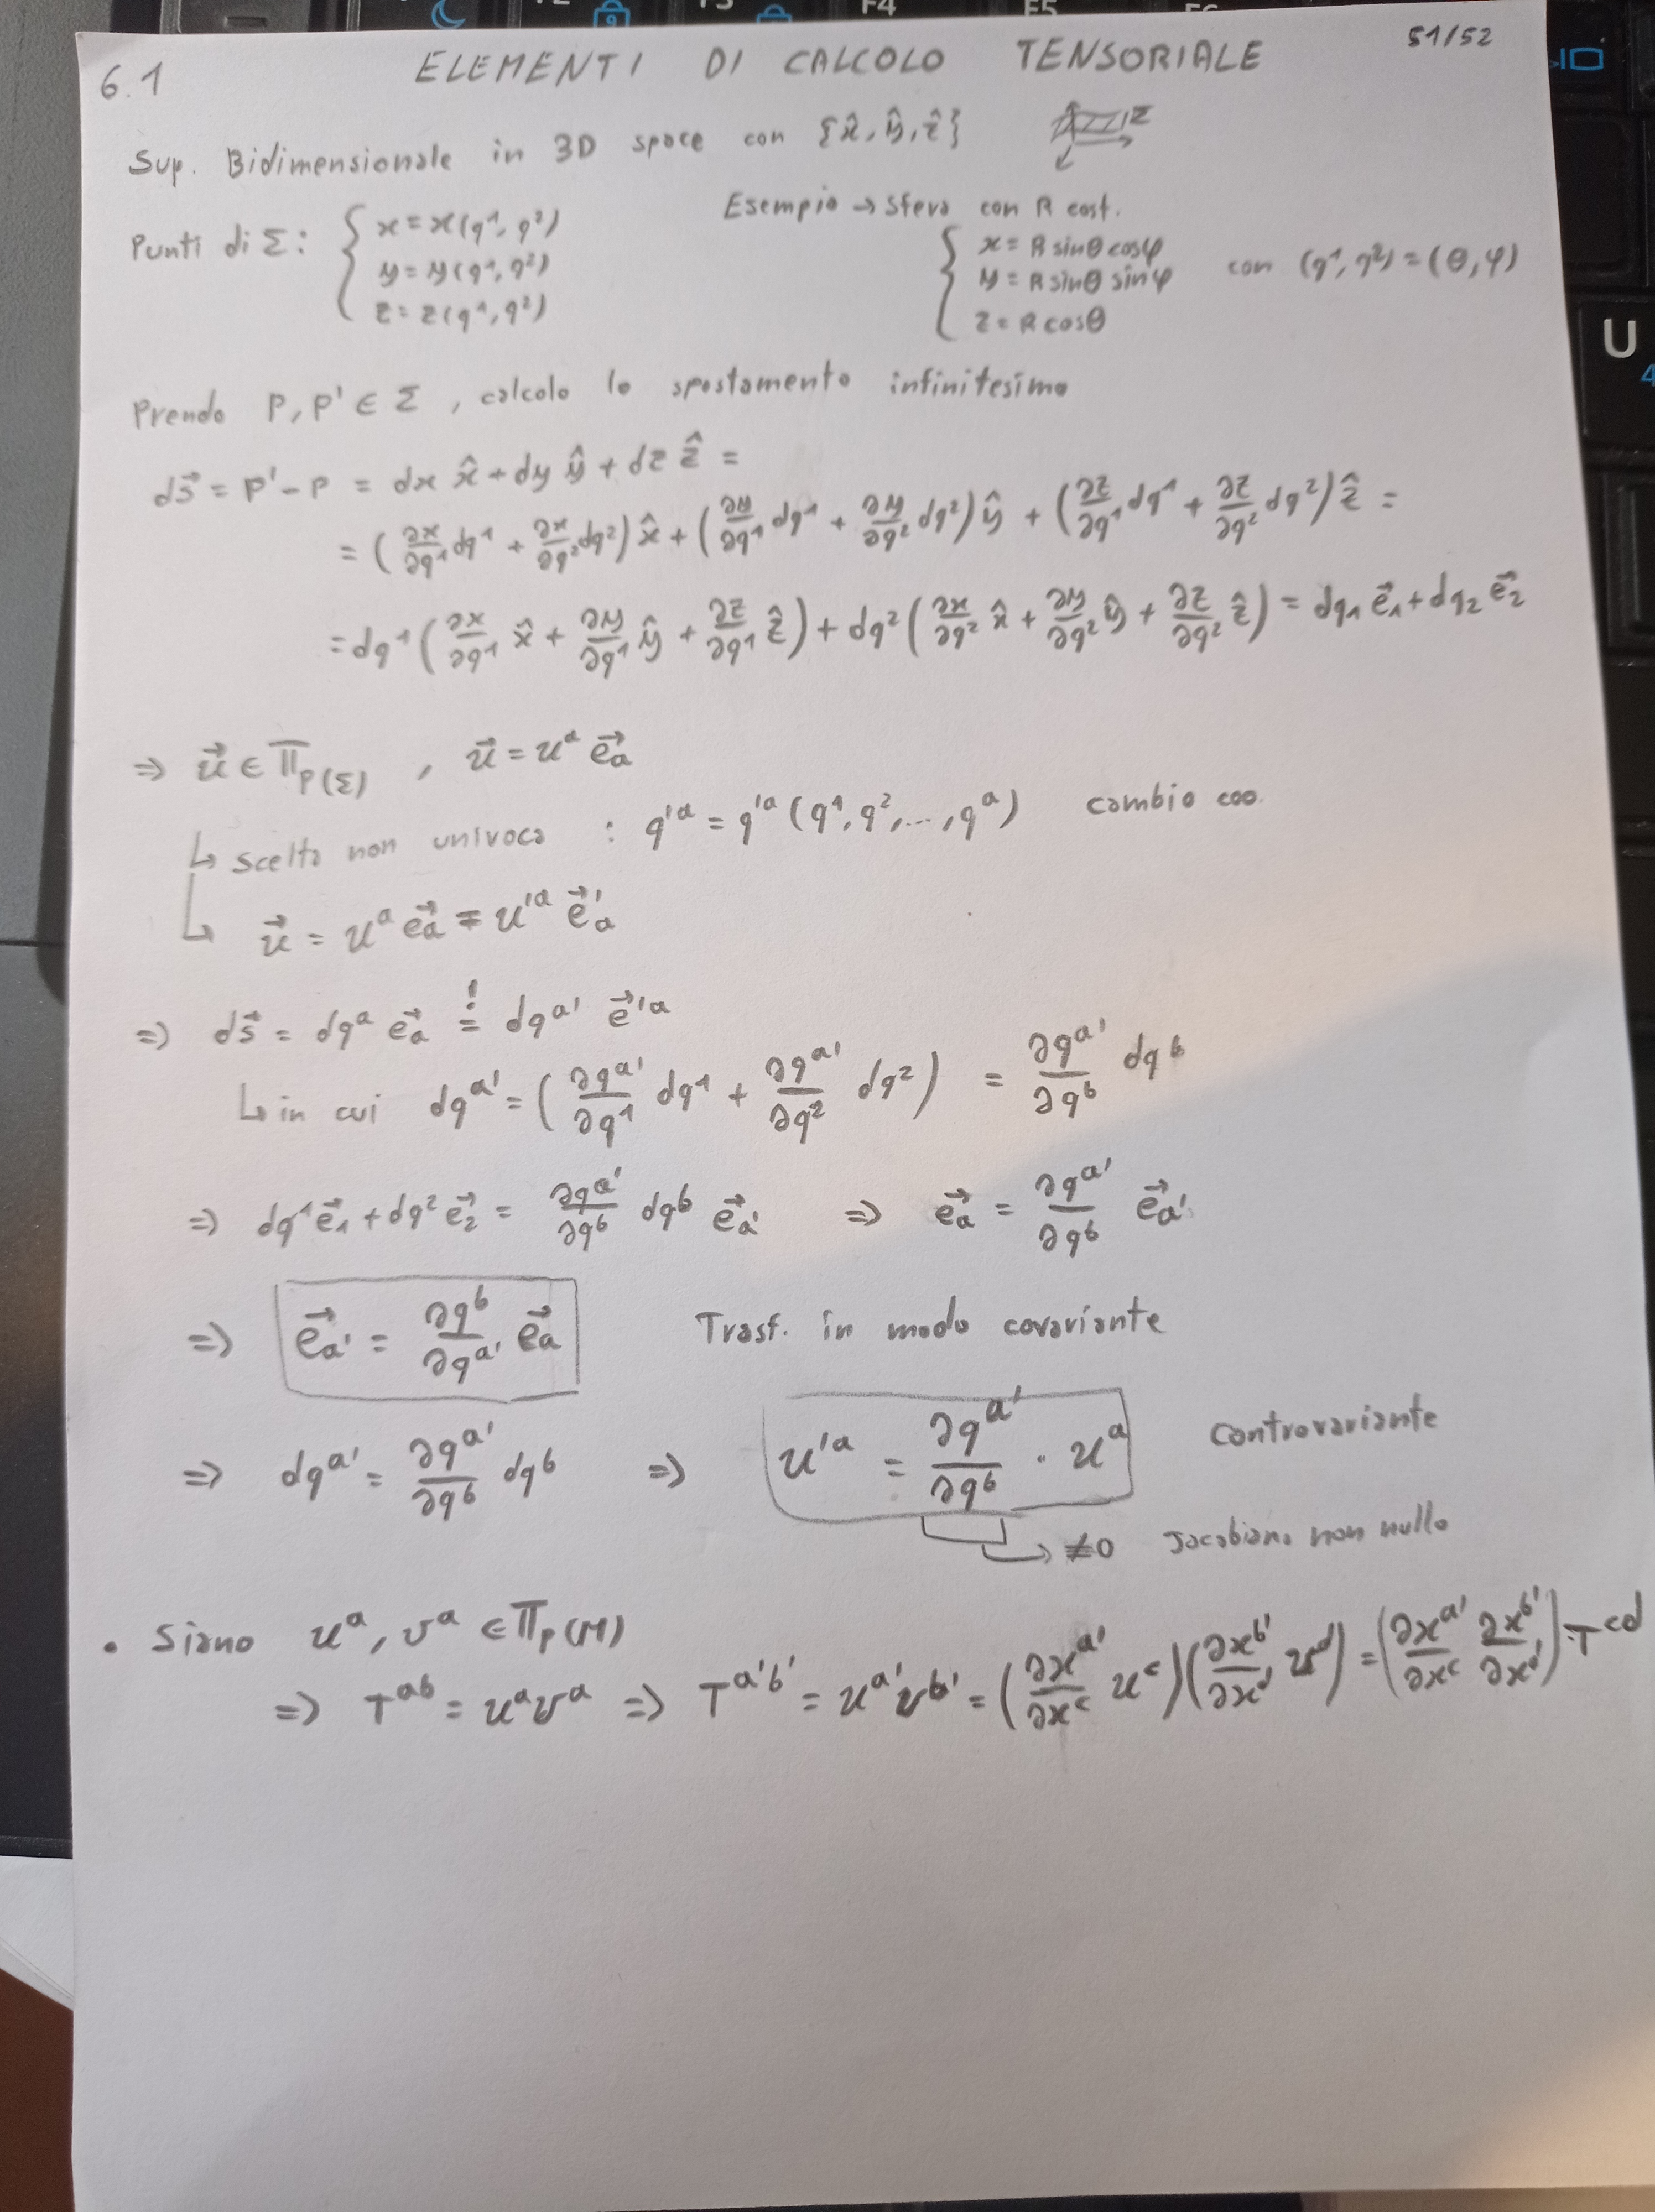 6.1 ELEMENTI DI CALCOLO TENSORIALE 51/52
Sup. Bidimensionale in 3D space con {x̂, ŷ, ẑ} Σ
Punti di Σ: { x = x(q¹, q²) Esempio → sfera con R cost.
y = y(q¹, q²) { x = R sinθ cosφ
z = z(q¹, q²) y = R sinθ sinφ con (q¹, q²) = (θ, φ)
z = R cosθ
Prendo P, P' ∈ Σ, calcolo lo spostamento infinitesimo
ds⃗ = P' - P = dx x̂ + dy ŷ + dz ẑ =
= (∂x/∂q¹ dq¹ + ∂x/∂q² dq²) x̂ + (∂y/∂q¹ dq¹ + ∂y/∂q² dq²) ŷ + (∂z/∂q¹ dq¹ + ∂z/∂q² dq²) ẑ =
= dq¹ (∂x/∂q¹ x̂ + ∂y/∂q¹ ŷ + ∂z/∂q¹ ẑ) + dq² (∂x/∂q² x̂ + ∂y/∂q² ŷ + ∂z/∂q² ẑ) = dq₁ e⃗₁ + dq₂ e⃗₂
⇒ u⃗ ∈ 𝕋_P(Σ) , u⃗ = uᵃ e⃗ₐ
↳ scelta non univoca : q'ᵃ = q'ᵃ (q¹, q², ..., qᵃ) cambio coo.
↳ u⃗ = uᵃ e⃗ₐ = u'ᵃ e⃗'ₐ
⇒ ds⃗ = dqᵃ e⃗ₐ =! dqᵃ' e⃗'ᵃ
↳ in cui dqᵃ' = (∂qᵃ'/∂q¹ dq¹ + ∂qᵃ'/∂q² dq²) = ∂qᵃ'/∂qᵇ dqᵇ
⇒ dq¹ e⃗₁ + dq² e⃗₂ = ∂qᵃ'/∂qᵇ dqᵇ e⃗ₐ' ⇒ e⃗ₐ = ∂qᵃ'/∂qᵇ e⃗ₐ'
⇒ e⃗ₐ' = ∂qᵇ/∂qᵃ' e⃗ₐ Trasf. in modo covariante
⇒ dqᵃ' = ∂qᵃ'/∂qᵇ dqᵇ ⇒ u'ᵃ = ∂qᵃ'/∂qᵇ · uᵃ Controvariante
↳ ≠0 Jacobiano non nullo
• Siano uᵃ, vᵃ ∈ 𝕋_P(M)
⇒ Tᵃᵇ = uᵃvᵃ ⇒ Tᵃ'ᵇ' = uᵃ'vᵇ' = (∂xᵃ'/∂xᶜ uᶜ)(∂xᵇ'/∂xᵈ vᵈ) = (∂xᵃ'/∂xᶜ ∂xᵇ'/∂xᵈ) · Tᶜᵈ
U
4
F4
F5